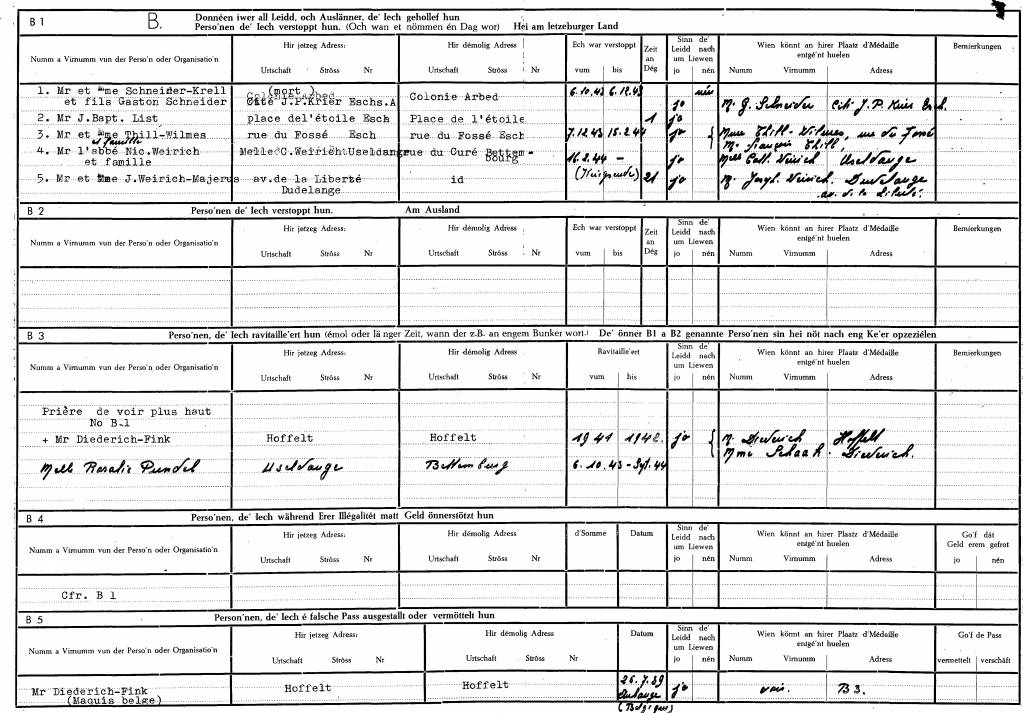 B 1 B. Donnéen iwer all Leidd, och Auslänner, de' Iech gehollef hun
Perso'nen de' Iech verstoppt hun. (Och wan et nömmen én Dag wor) Hei am letzeburger Land
Numm a Virnumm vun der Perso'n oder Organisatio'n
Hir jetzeg Adress:
Urtschaft Ströss Nr
Hir démolig Adress
Urtschaft Ströss Nr
Ech war verstoppt
vum bis
Zeit
an
Dég
Sinn de'
Leidd nach
um Liewen
jo nén
Wien könnt an hirer Plaatz d'Médaille
entgé'nt huelen
Numm Virnumm Adress
Bemierkungen
1. Mr et Mme Schneider-Krell (mort) 6.10.43 6.12.43
et fils Gaston Schneider Cité J.P.Krier Eschs.A Colonie Arbed jo M. G. Schneider Cité J.P. Krier Esch.
2. Mr J.Bapt. List place del'étoile Esch Place de l'étoile 1 jo
3. Mr et Mme Thill-Wilmes rue du Fossé Esch rue du Fossé Esch 7.12.43 15.2.44 jo Mme Thill-Wilmes, rue du Fossé
et famille M. François Thill,
4. Mr l'abbé Nic.Weirich Melle C.Weiricht Useldange rue du Curé Bettem-
bourg
et famille 16.2.44 – jo Melle Cath. Weirich Useldange
5. Mr et Mme J.Weirich-Majerus av.de la Liberté id 21 jo M. Joseph Weirich. Dudelange
Dudelange av. de la Liberté.
B 2 Perso'nen de' Iech verstoppt hun. Am Ausland
Numm a Virnumm vun der Perso'n oder Organisatio'n
Hir jetzeg Adress:
Urtschaft Ströss Nr
Hir démolig Adress
Urtschaft Ströss Nr
Ech war verstoppt
vum bis
Zeit
an
Dég
Sinn de'
Leidd nach
um Liewen
jo nén
Wien könnt an hirer Plaatz d'Médaille
entgé'nt huelen
Numm Virnumm Adress
Bemierkungen
B 3 Perso'nen, de' Iech ravitaille'ert hun (émol oder länger Zeit, wann der z.B. an engem Bunker wort.) De' önner B1 a B2 genannte Perso'nen sin hei nöt nach eng Ke'er opzeziélen
Numm a Virnumm vun der Perso'n oder Organisatio'n
Hir jetzeg Adress:
Urtschaft Ströss Nr
Hir démolig Adress
Urtschaft Ströss Nr
Ravitaille'ert
vum bis
Sinn de'
Leidd nach
um Liewen
jo nén
Wien könnt an hirer Plaatz d'Médaille
entgé'nt huelen
Numm Virnumm Adress
Bemierkungen
Prière de voir plus haut
No B-1
+ Mr Diederich-Fink Hoffelt Hoffelt 1941 1942. jo M. Diederich Hoffelt
Mme Schaak-Diederich.
Melle Rosalie Pundel Useldange Bettemburg 6.10.43 - Spt.44
B 4 Perso'nen, de' Iech während Erer Illégalitét matt Geld önnerstötzt hun
Numm a Virnumm vun der Perso'n oder Organisatio'n
Hir jetzeg Adress:
Urtschaft Ströss Nr
Hir démolig Adress
Urtschaft Ströss Nr
d'Somme Datum
Sinn de'
Leidd nach
um Liewen
jo nén
Wien könnt an hirer Plaatz d'Médaille
entgé'nt huelen
Numm Virnumm Adress
Go'f dät
Geld erem gefrot
jo nén
Cfr. B 1
B 5 Perso'nen, de' Iech é falsche Pass ausgestallt oder vermöttelt hun
Numm a Virnumm vun der Perso'n oder Organisatio'n
Hir jetzeg Adress:
Urtschaft Ströss Nr
Hir démolig Adress
Urtschaft Ströss Nr
Datum
Sinn de'
Leidd nach
um Liewen
jo nén
Wien könnt an hirer Plaatz d'Médaille
entgé'nt huelen
Numm Virnumm Adress
Go'f de Pass
vermettelt verschäft
Mr Diederich-Fink Hoffelt Hoffelt jo voir. B 3.
(Maquis belge)